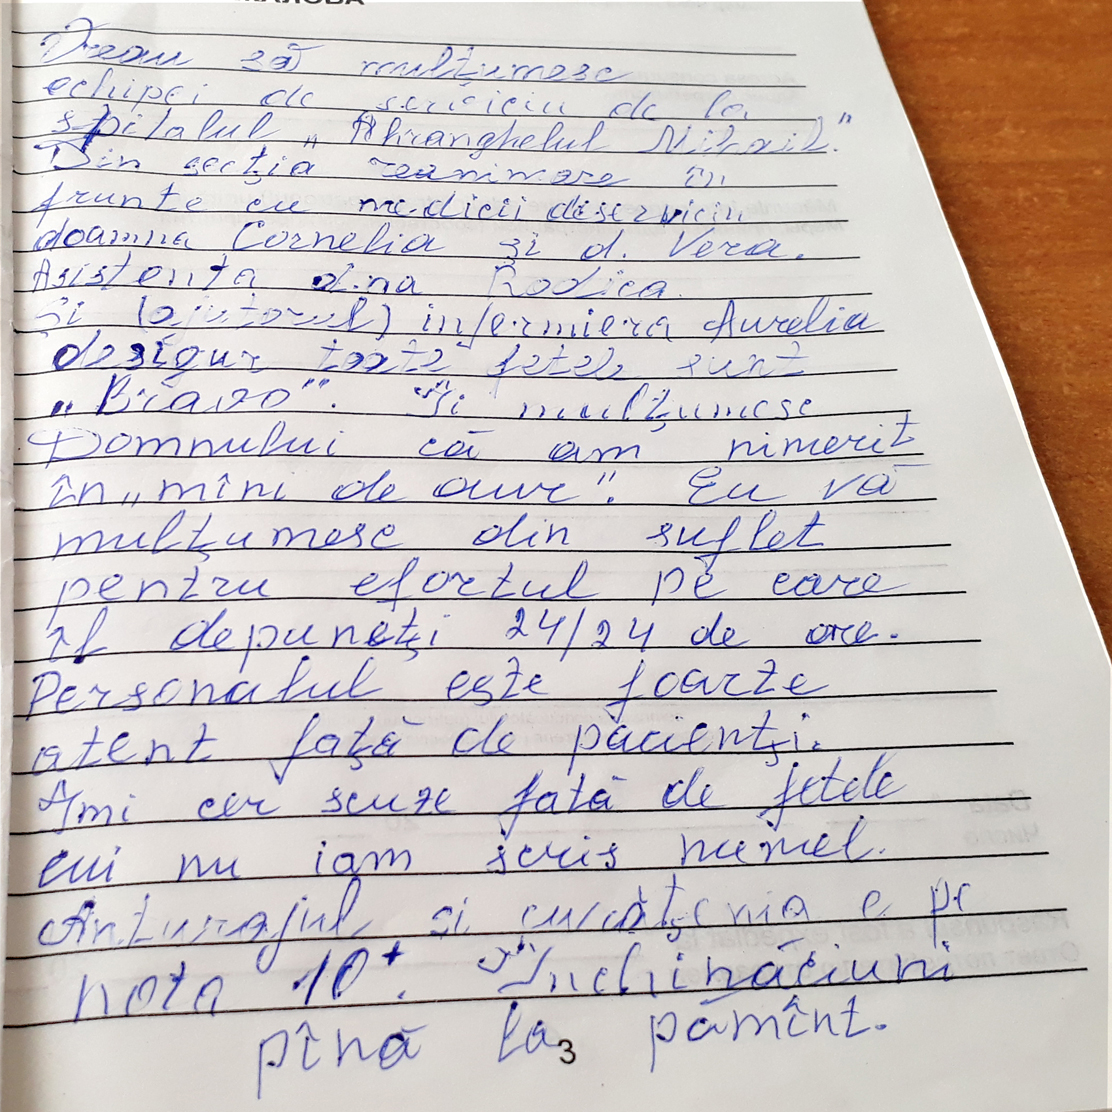 Vreau să mulțumesc
echipei de serviciu de la
spitalul „Ahranghelul Mihail."
Din secția reanimare în
frunte cu medicii deserviciu
doamna Cornelia și d. Vera.
Asistenta d.na Rodica.
Și (ajutorul) infermiera Aurelia
desigur toate fetele sunt
„Bravo". Îi mulțumesc
Domnului că am nimerit
în „mîni de aur". Eu vă
mulțumesc din suflet
pentru efortul pe care
îl depuneți 24/24 de ore.
Personalul este foarte
atent față de pacienți.
Imi cer scuze fată de fetele
cui nu iam scris numel.
Anturajul si curățenia e pe
nota 10+. Închinăciuni
pînă la pămînt.
3